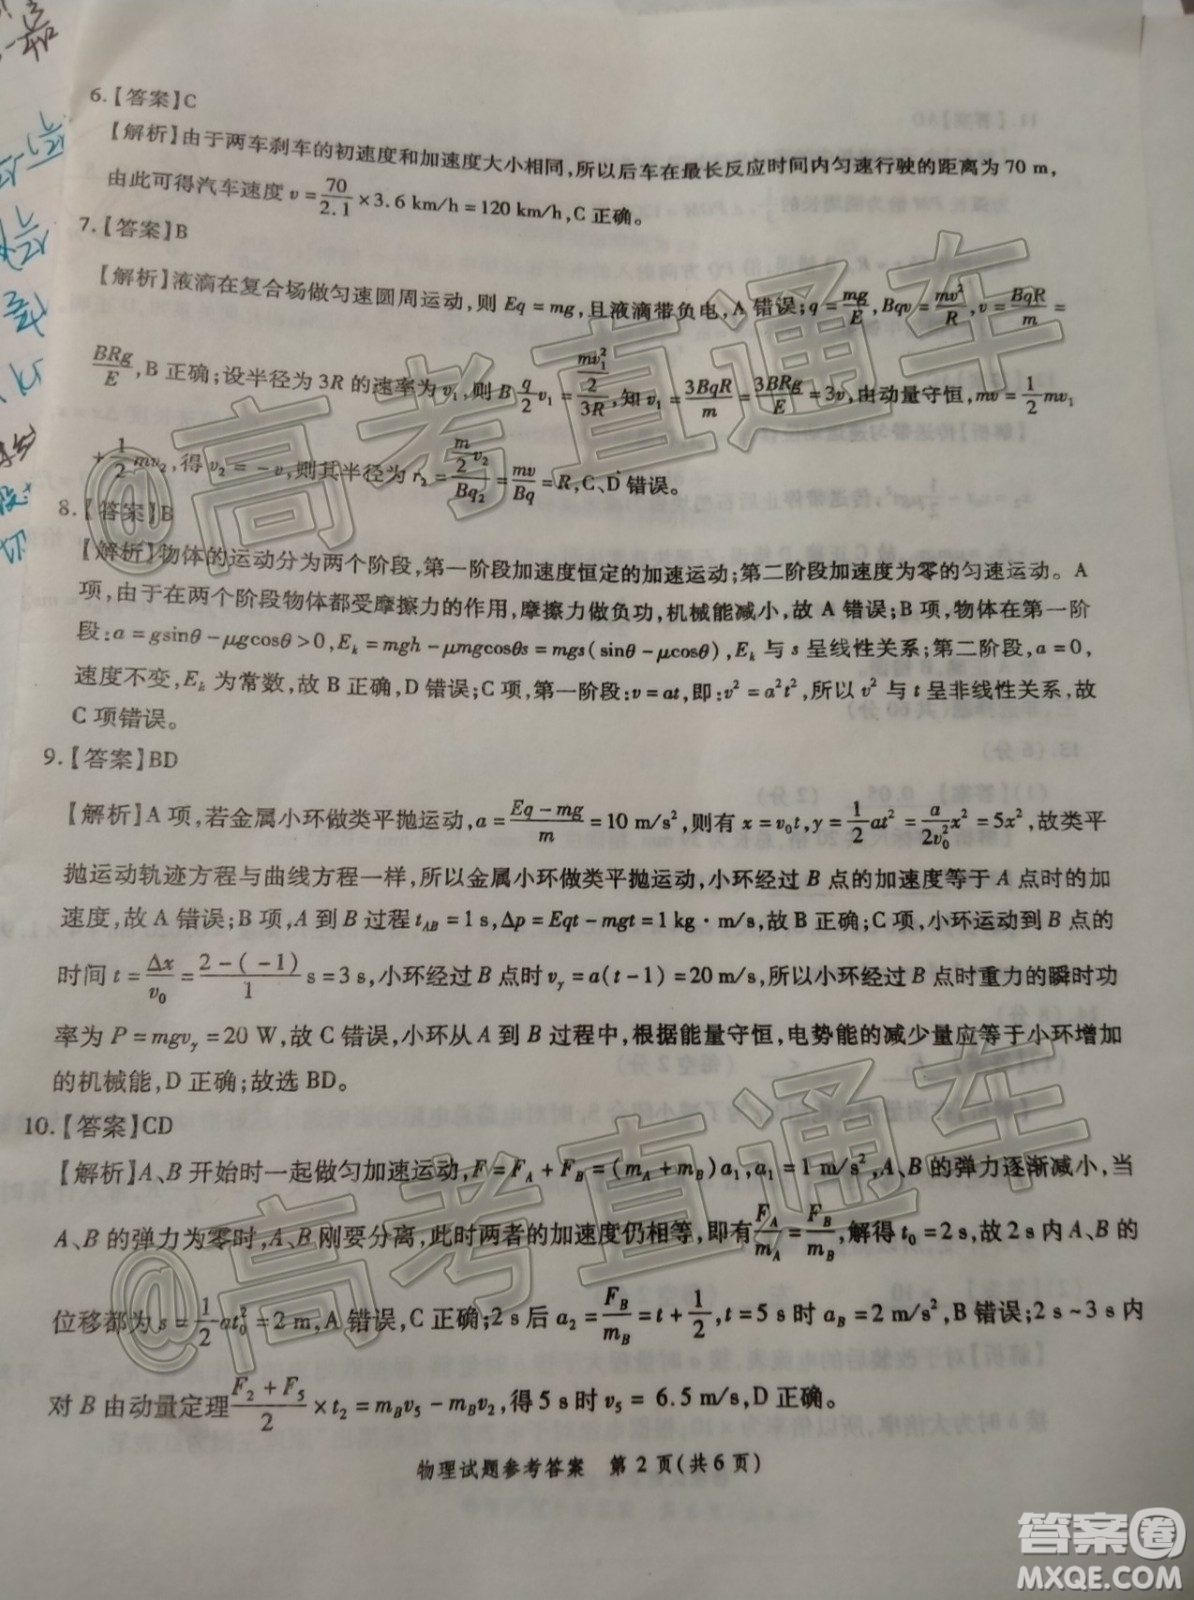 6.【答案】C
【解析】由于两车刹车的初速度和加速度大小相同,所以后车在最长反应时间内匀速行驶的距离为 70 m,
由此可得汽车速度 v = 70/2.1 × 3.6 km/h = 120 km/h,C 正确。
7.【答案】B
【解析】液滴在复合场做匀速圆周运动,则 Eq = mg,且液滴带负电,A 错误;q = mg/E,Bqv = mv²/R,v = BqR/m =
BRg/E,B 正确;设半径为 3R 的速率为 v₁,则 B q/2 v₁ = (mv₁²/2)/3R,知 v₁ = 3BqR/m = 3BRg/E = 3v,由动量守恒,mv = 1/2 mv₁
+ 1/2 mv₂,得 v₂ = -v,则其半径为 r₂ = (m/2 v₂)/Bq₂ = mv/Bq = R,C、D 错误。
8.【答案】B
【解析】物体的运动分为两个阶段,第一阶段加速度恒定的加速运动;第二阶段加速度为零的匀速运动。A
项,由于在两个阶段物体都受摩擦力的作用,摩擦力做负功,机械能减小,故 A 错误;B 项,物体在第一阶
段:a = gsinθ - μgcosθ > 0,Eₖ = mgh - μmgcosθs = mgs(sinθ - μcosθ),Eₖ 与 s 呈线性关系;第二阶段,a = 0,
速度不变,Eₖ 为常数,故 B 正确,D 错误;C 项,第一阶段:v = at,即:v² = a²t²,所以 v² 与 t 呈非线性关系,故
C 项错误。
9.【答案】BD
【解析】A 项,若金属小环做类平抛运动,a = (Eq - mg)/m = 10 m/s²,则有 x = v₀t,y = 1/2 at² = a/2v₀² x² = 5x²,故类平
抛运动轨迹方程与曲线方程一样,所以金属小环做类平抛运动,小环经过 B 点的加速度等于 A 点时的加
速度,故 A 错误;B 项,A 到 B 过程 t_AB = 1 s,Δp = Eqt - mgt = 1 kg · m/s,故 B 正确;C 项,小环运动到 B 点的
时间 t = Δx/v₀ = (2 - (-1))/1 s = 3 s,小环经过 B 点时 v_y = a(t - 1) = 20 m/s,所以小环经过 B 点时重力的瞬时功
率为 P = mgv_y = 20 W,故 C 错误,小环从 A 到 B 过程中,根据能量守恒,电势能的减少量应等于小环增加
的机械能,D 正确;故选 BD。
10.【答案】CD
【解析】A、B 开始时一起做匀加速运动,F = F_A + F_B = (m_A + m_B)a₁,a₁ = 1 m/s²,A、B 的弹力逐渐减小,当
A、B 的弹力为零时,A、B 刚要分离,此时两者的加速度仍相等,即有 F_A/m_A = F_B/m_B,解得 t₀ = 2 s,故 2 s 内 A、B 的
位移都为 s = 1/2 at₀² = 2 m,A 错误,C 正确;2 s 后 a₂ = F_B/m_B = t + 1/2,t = 5 s 时 a_B = 2 m/s²,B 错误;2 s ~ 3 s 内
对 B 由动量定理 (F₂ + F₅)/2 × t₂ = m_Bv₅ - m_Bv₂,得 5 s 时 v₅ = 6.5 m/s,D 正确。
物理试题参考答案 第 2 页(共 6 页)
@高考直通车
@高考直通车
答案圈
MXQE.COM